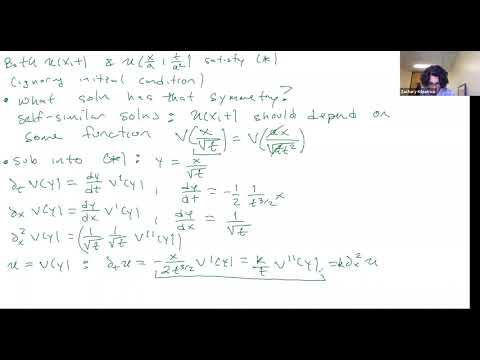 Both u(x,t) & u(x/a, t/a²) satisfy (*)
(ignoring initial condition)
• What soln has that symmetry?
self-similar solns: u(x,t) should depend on
some function V(x/√t) = V(ax/√(a²t))
• Sub into (*): y = x/√t
∂t V(y) = dy/dt V'(y), dy/dt = -1/2 1/t^(3/2) x
∂x V(y) = dy/dx V'(y), dy/dx = 1/√t
∂x² V(y) = (1/√t 1/√t V''(y))
u = V(y): ∂t u = -x/(2t^(3/2)) V'(y) = k/t V''(y) = k∂x² u
Zachary Kilpatrick